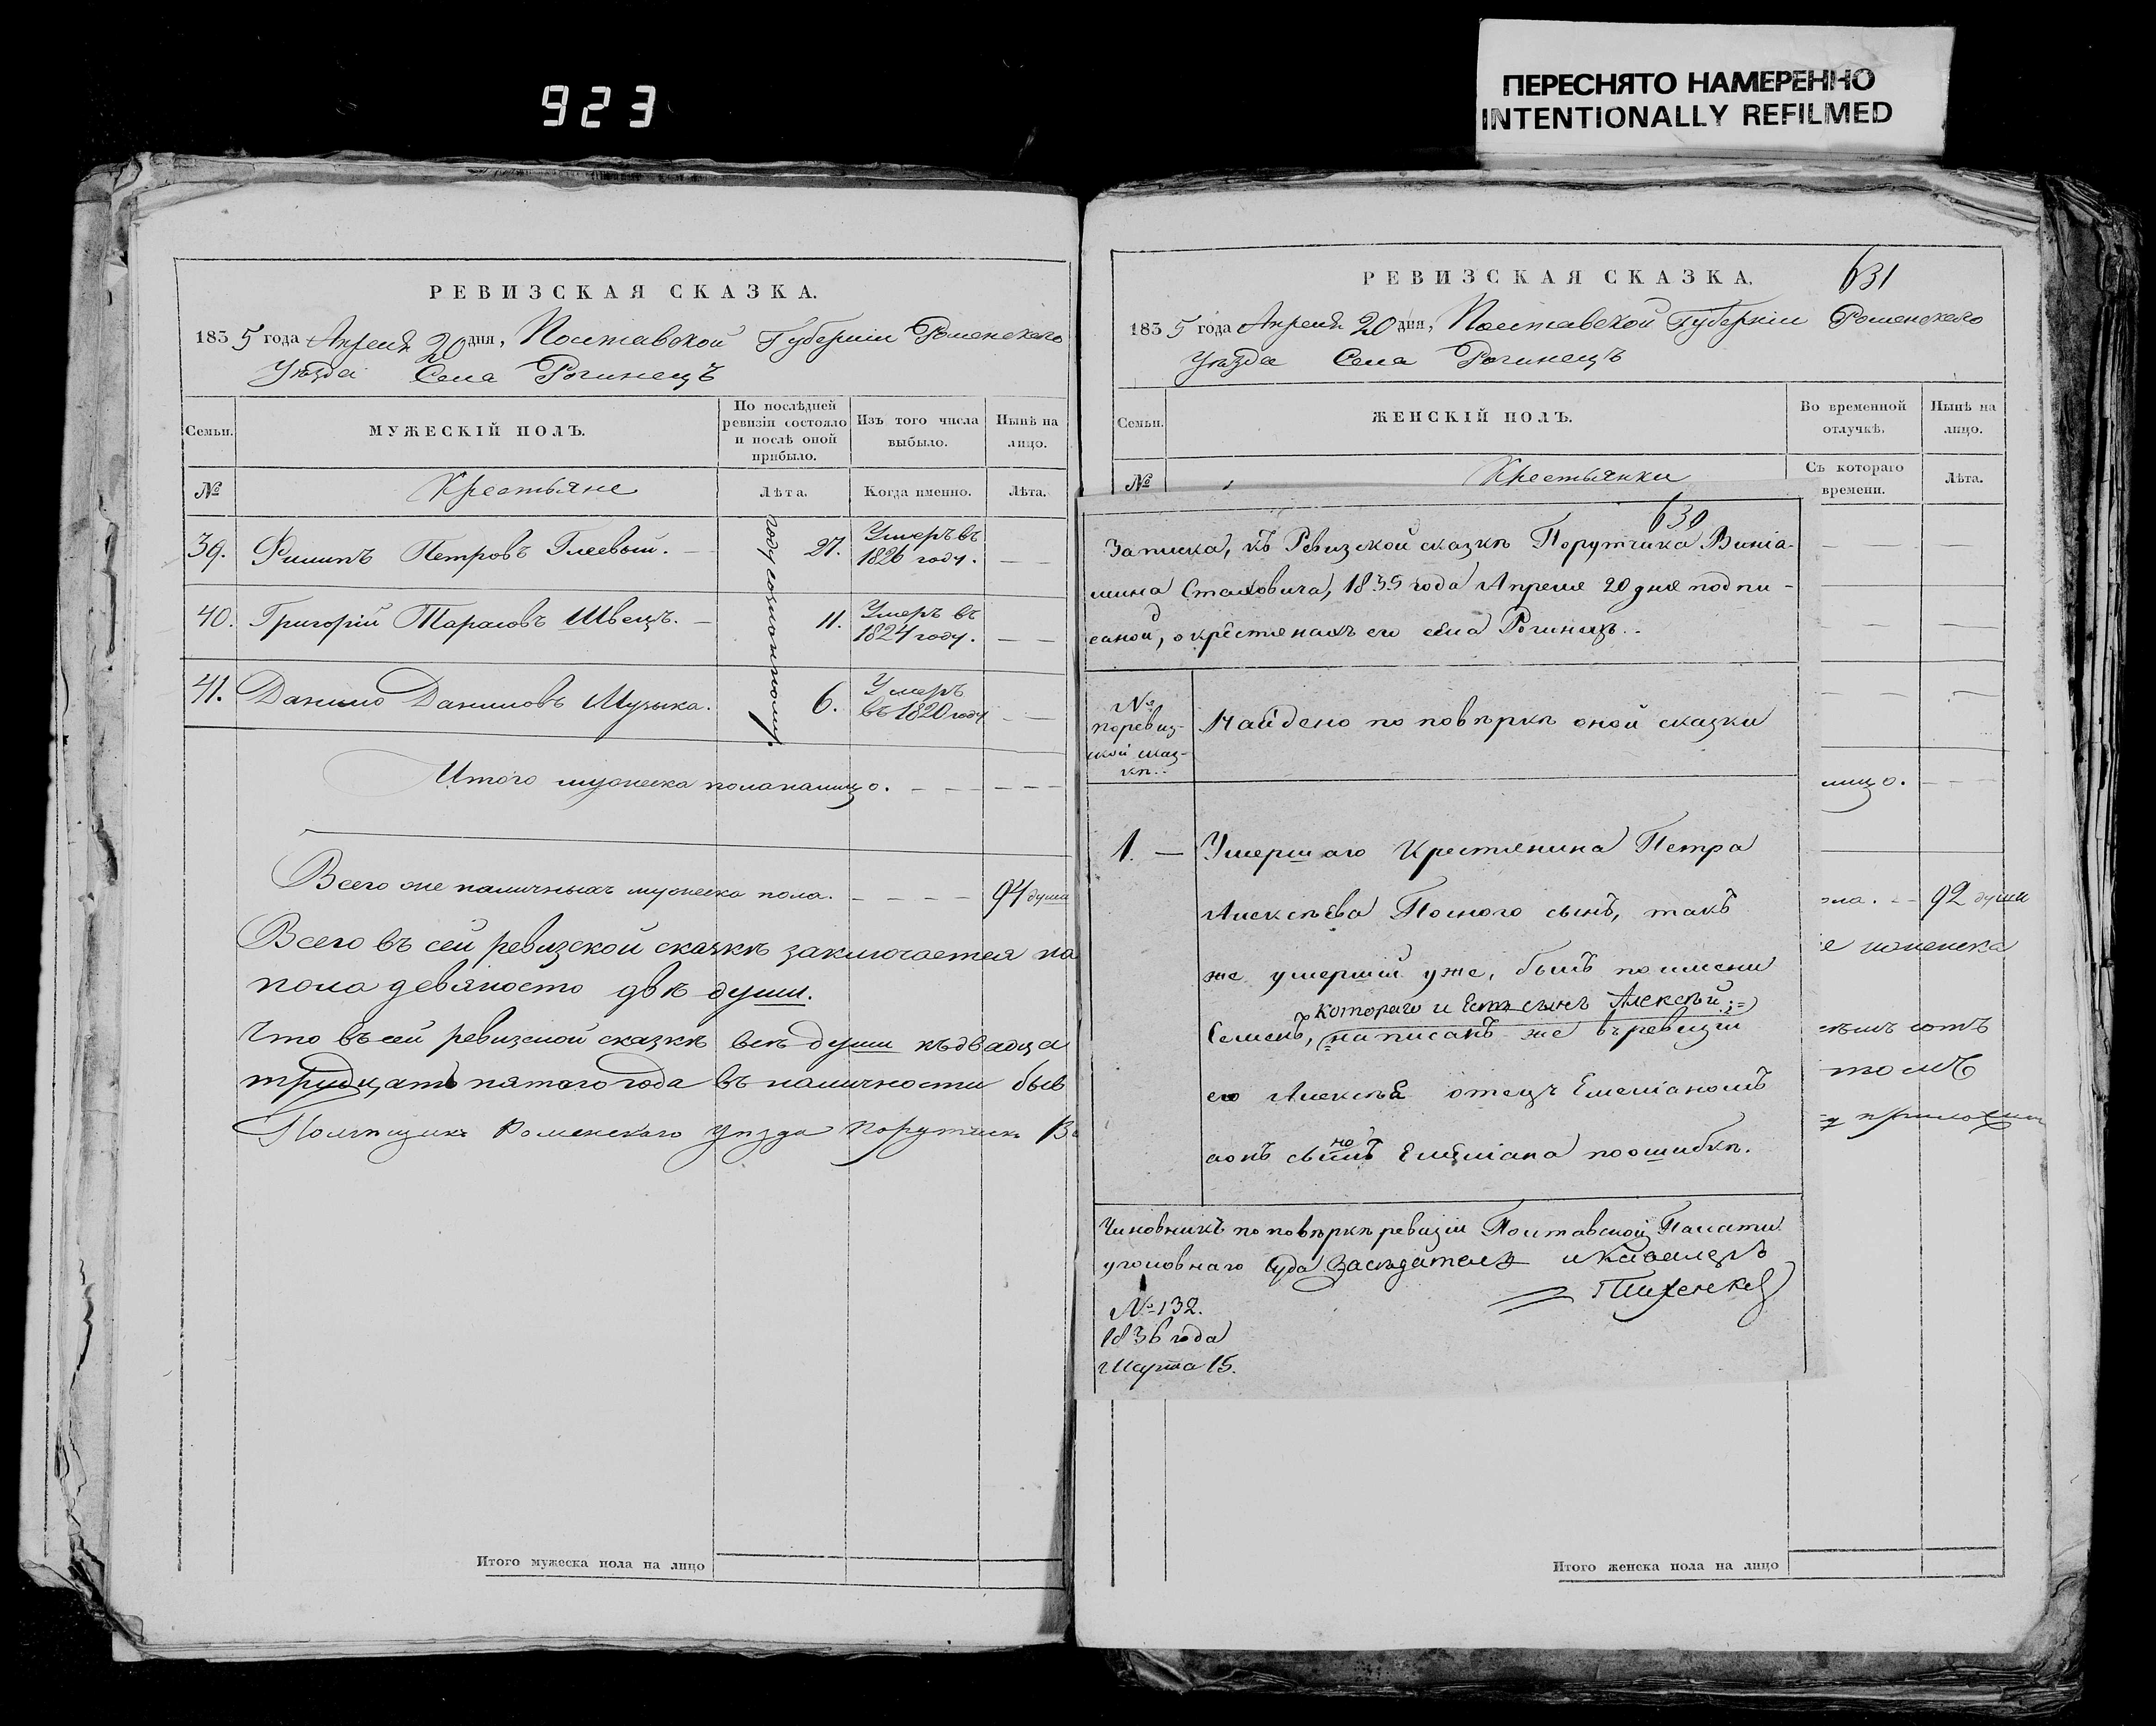 923
ПЕРЕСНЯТО НАМЕРЕННО
INTENTIONALLY REFILMED
РЕВИЗСКАЯ СКАЗКА.
1835 года Апреля 20 дня, Полтавской Губернiи Роменского
Уѣзда Села Рогинецъ
Семьи.
МУЖЕСКIЙ ПОЛЪ.
По послѣдней ревизiи состояло и послѣ оной прибыло.
Изъ того числа выбыло.
Нынѣ на лицо.
№
Крестьяне
Лѣта.
Когда именно.
Лѣта.
39. Филипъ Петровъ Глеевый. — 27. Умеръ въ 1826 году. — —
40. Григорiй Тарасовъ Швецъ. — 11. Умеръ въ 1824 году. — —
41. Данило Даниловъ Музыка. 6. Умеръ въ 1820 году — —
Итого мужеска пола налицо. — — — — — —
Всего же наличныхъ мужеска пола. — — — — 94 душа
Всего въ сей ревизской сказкѣ заключается на
пола девяносто двѣ души.
Что въ сей ревизской сказкѣ всѣ души къ двадца
тридцать пятого года въ наличности быв
Помѣщикъ Роменского уѣзда Порутчикъ
Итого мужеска пола на лицо
РЕВИЗСКАЯ СКАЗКА.
631
1835 года Апреля 20 дня, Полтавской Губернiи Роменского
Уѣзда Села Рогинецъ
Семьи.
ЖЕНСКIЙ ПОЛЪ.
Во временной отлучкѣ.
Нынѣ на лицо.
№
Крестьянки
Съ котораго времени.
Лѣта.
630
Записка, къ Ревизской сказкѣ Порутчика Винiа-
мина Стаховича, 1835 года Апреля 20 дня подпи-
саной, о крестянахъ его села Рогинецъ.
№ поревиз-
ской сказ-
кѣ.
Найдено по повѣркѣ оной сказки
1. — Умершаго Крестянина Петра
Алексѣева Полного сынъ, такъ
же умершiй уже, былъ по имени
котораго и есть сынъ Алексѣй
Семенъ, написанъ же въ ревизiи
его Алексѣя отецъ Емелiаномъ
а онъ сынъ Емелiана по ошибкѣ.
Чиновникъ по повѣркѣ ревизiи Полтавской Палаты
уголовнаго Суда Засѣдатель и Кавалеръ
№ 132.
1836 года
Марта 15.
лицо. — —
ола. — 92 души
е женска
томъ
Итого женска пола на лицо